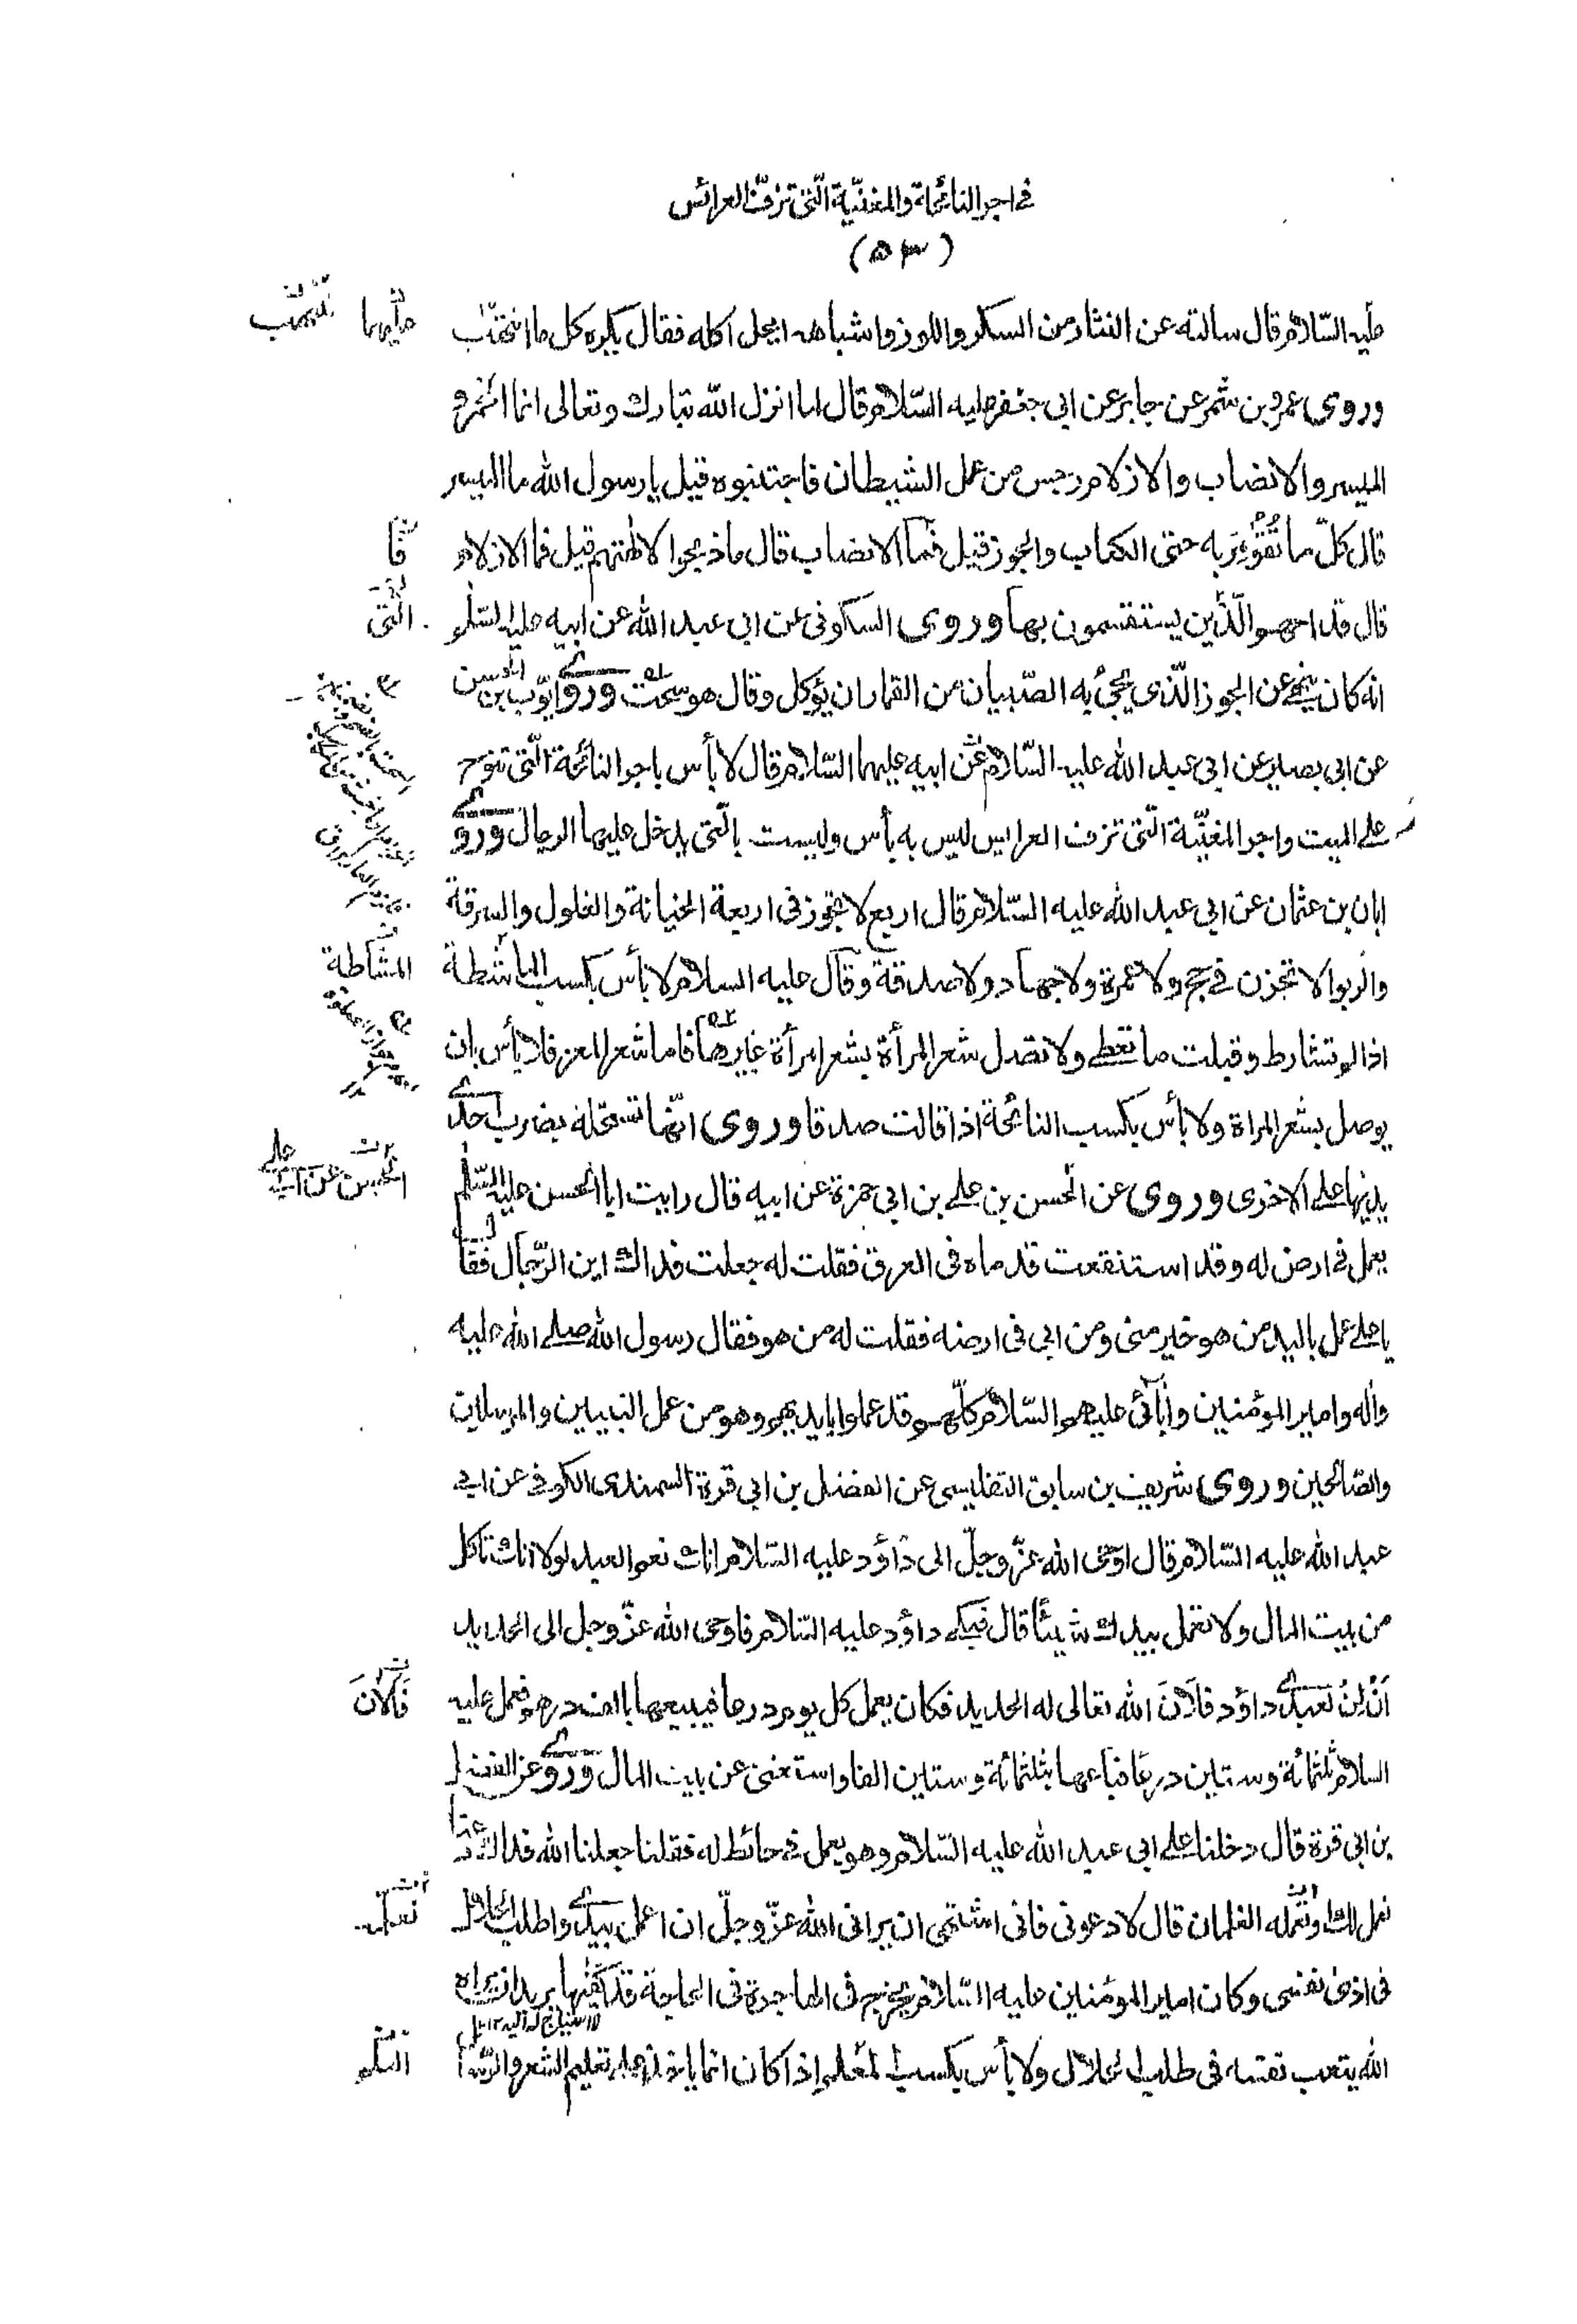 في اجر النائحة والمغنّية الّتى تزفّ العرائس
(٥٣)
عليه السّلام قال سالته عن النثار من السكر واللوز واشباهه ايحل اكله فقال يكره كل ما انتهب
وروى عمرو بن شمر عن جابر عن ابى جعفر عليه السّلام قال لما انزل الله تبارك وتعالى انما الخمر و
الميسر والانصاب والازلام رجس من عمل الشيطان فاجتنبوه قيل يا رسول الله ما الميسر
قال كلّ ما تُقُومِرَ به حتى الكعاب والجوز قيل فما الانصاب قال ما ذبحوا لآلهتهم قيل فما الازلام
قال قداحهم الّذين يستقسمون بها وروى السكونى عن ابى عبد الله عن ابيه عليه السّلم
انه كان ينهى عن الجوز الّذى يجئ به الصّبيان من القمار ان يؤكل وقال هو سحت وروى ايّوب بن الحسين
عن ابى بصير عن ابى عبد الله عليه السّلام عن ابيه عليهما السّلام قال لا بأس باجر النائحة الّتى تنوح
على الميت واجر المغنّية الّتى تزف العرايس ليس به بأس وليست بالّتى يدخل عليها الرجال وروى
ابان بن عثمان عن ابى عبد الله عليه السّلام قال اربع لا تجوز فى اربعة الخيانة والغلول والسرقة
والربوا لا تجزن في حج ولا عمرة ولا جهاد ولا صدقة وقال عليه السلام لا بأس بكسب الماشطة
اذا لم تشارط وقبلت ما تعطى ولا تصل شعر المرأة بشعر امرأة غيرها فاما شعر المعز فلا بأس بان
يوصل بشعر المراة ولا بأس بكسب النائحة اذا قالت صدقا وروى انّها تستحله بضرب احدى
يديها على الاخرى وروى عن الحسن بن على بن ابى حمزة عن ابيه قال رايت ابا الحسن عليه السّلم
يعمل في ارض له وقد استنقعت قدماه فى العرق فقلت له جعلت فداك اين الرّجال فقال
يا على عمل باليد من هو خير منى ومن ابى فى ارضه فقلت له من هو فقال رسول الله صلى الله عليه
وآله وامير المؤمنين وآبائى عليهم السّلام كلّهم قد عملوا بايديهم وهو من عمل النبيين والمرسلين
والصّالحين وروى شريف بن سابق التفليسى عن الفضل بن ابى قرة السمندى الكوفى عن ابى
عبد الله عليه السّلام قال اوحى الله عزّ وجلّ الى داؤد عليه السّلام انك نعم العبد لولا انك تاكل
من بيت المال ولا تعمل بيدك شيئًا قال فبكى داؤد عليه السّلام فاوحى الله عزّ وجل الى الحديد
اَنْ لِنْ لعبدى داؤد فلانَ الله تعالى له الحديد فكان يعمل كل يوم درعا فيبيعها بالف درهم فعمل عليه
السلام ثلثمائة وستين درعًا فباعها بثلثمائة وستين الفا واستغنى عن بيت المال وروى عن الفضل
بن ابى قرة قال دخلنا على ابى عبد الله عليه السّلام وهو يعمل في حائط له فقلنا جعلنا الله فداك دعنا
نعمل لك او تعمله الغلمان قال لا دعونى فانى اشتهى ان يرانى الله عزّ وجلّ ان اعمل بيدى واطلب الحلال
فى اذى نفسى وكان امير المؤمنين عليه السّلام يخرج فى الهاجرة فى الحاجة قد كفيها يريد ان يراه
الله يتعب نفسه فى طلب الحلال ولا بأس بكسب المعلم اذا كان انما ياخذ على تعليم الشعر والرّسائل
عليهما
فما
الّتى
المشاطة
الحسين عن
فَاَلانَ
نعمل